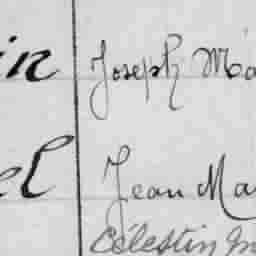 in Joseph Ma
el Jean Mar
Célestin